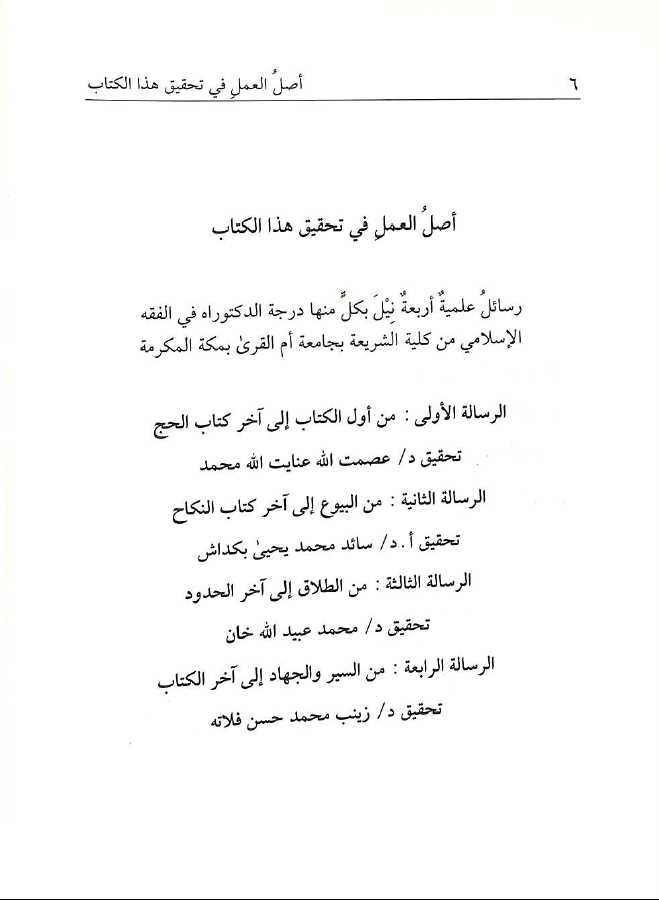 ٦ أصلُ العملِ في تحقيق هذا الكتاب
أصلُ العملِ في تحقيق هذا الكتاب
رسائلُ علميةٌ أربعةٌ نِيْلَ بكلٍّ منها درجة الدكتوراه في الفقه
الإسلامي من كلية الشريعة بجامعة أم القرىٰ بمكة المكرمة
الرسالة الأولى : من أول الكتاب إلى آخر كتاب الحج
تحقيق د/ عصمت الله عنايت الله محمد
الرسالة الثانية : من البيوع إلى آخر كتاب النكاح
تحقيق أ.د/ سائد محمد يحيىٰ بكداش
الرسالة الثالثة : من الطلاق إلى آخر الحدود
تحقيق د/ محمد عبيد الله خان
الرسالة الرابعة : من السير والجهاد إلى آخر الكتاب
تحقيق د/ زينب محمد حسن فلاته